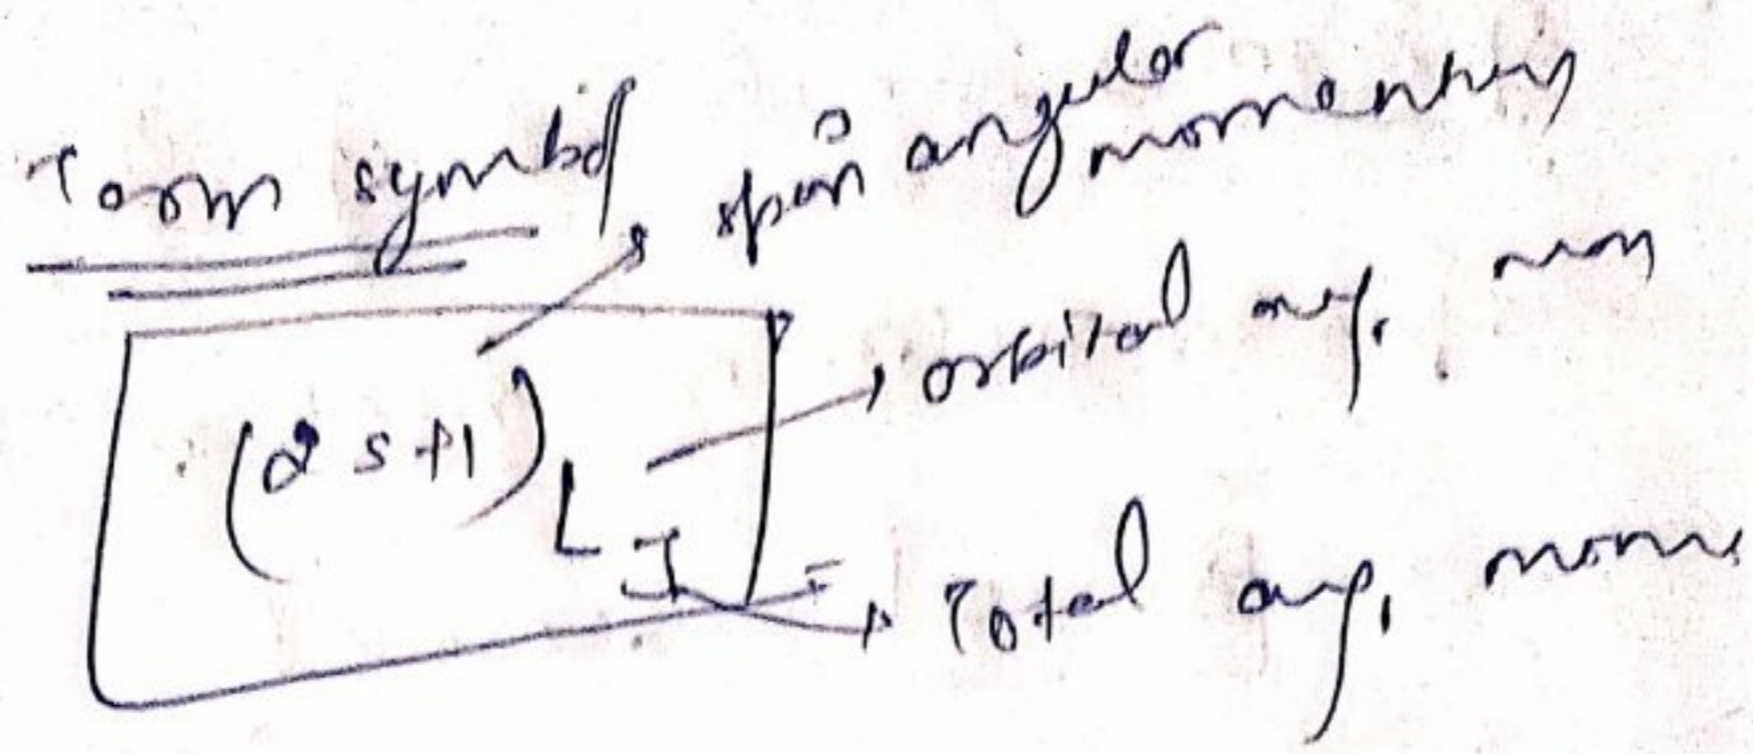 Term symbol
spin angular
momentum
(2s+1)
L J
orbital ang. mom
Total ang. mome